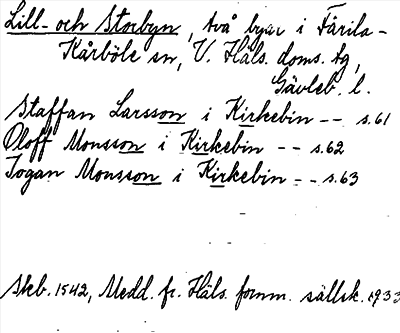 Lill- och Storbyn, två byar i Färila-
Kårböle sn, V. Häls. doms. tg,
Gävleb. l.
Staffan Larsson i Kirkebin -- s.61
Oloff Monsson i Kirkebin -- s.62
Jogan Monsson i Kirkebin -- s.63
Skb. 1542, Medd. fr. Häls. fornm. sällsk. 1933